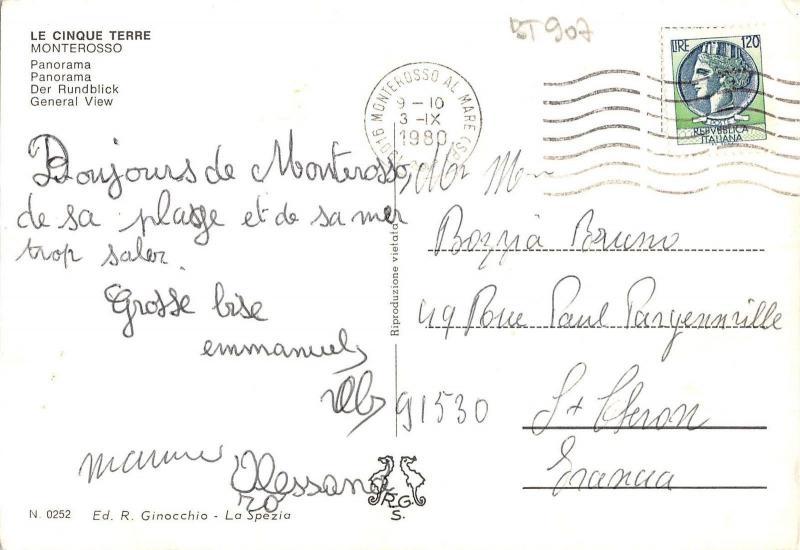 LE CINQUE TERRE
MONTEROSSO
Panorama
Panorama
Der Rundblick
General View
BT907
MONTEROSSO AL MARE (SP)
9-10
3-IX
1980
LIRE 120
POSTE
REPVBBLICA
ITALIANA
Bonjours de Monterosso,
de sa plage et de sa mer
trop saler.
Grosse bise
emmanuel
Alessand
ro
Mr Mme
Bozzia Bruno
49 Rue Paul Pargenville
91530
St Cheron
Francia
Riproduzione vietata
R.G.
S.
N. 0252 Ed. R. Ginocchio - La Spezia